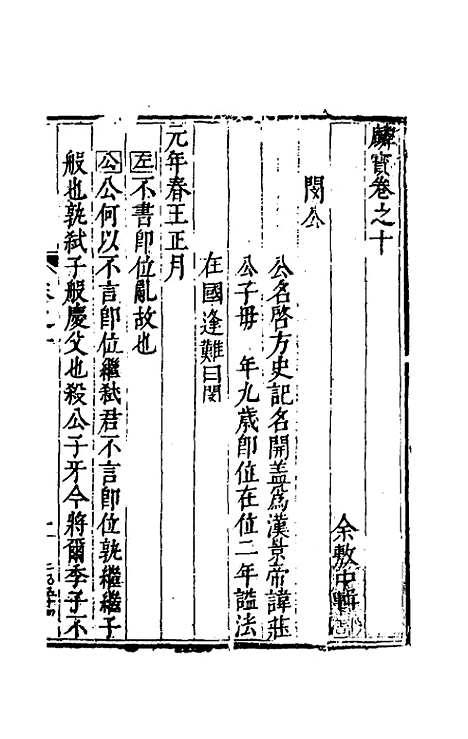 麟寶卷之十
余敷中輯
閔公
公名啓方史記名開盖爲漢景帝諱莊
公子毋　年九歲即位在位二年謚法
在國逢難曰閔
元年春王正月
左不書即位亂故也
公公何以不言即位繼弒君不言即位孰繼繼子
般也孰弒子般慶父也殺公子牙今將爾季子不